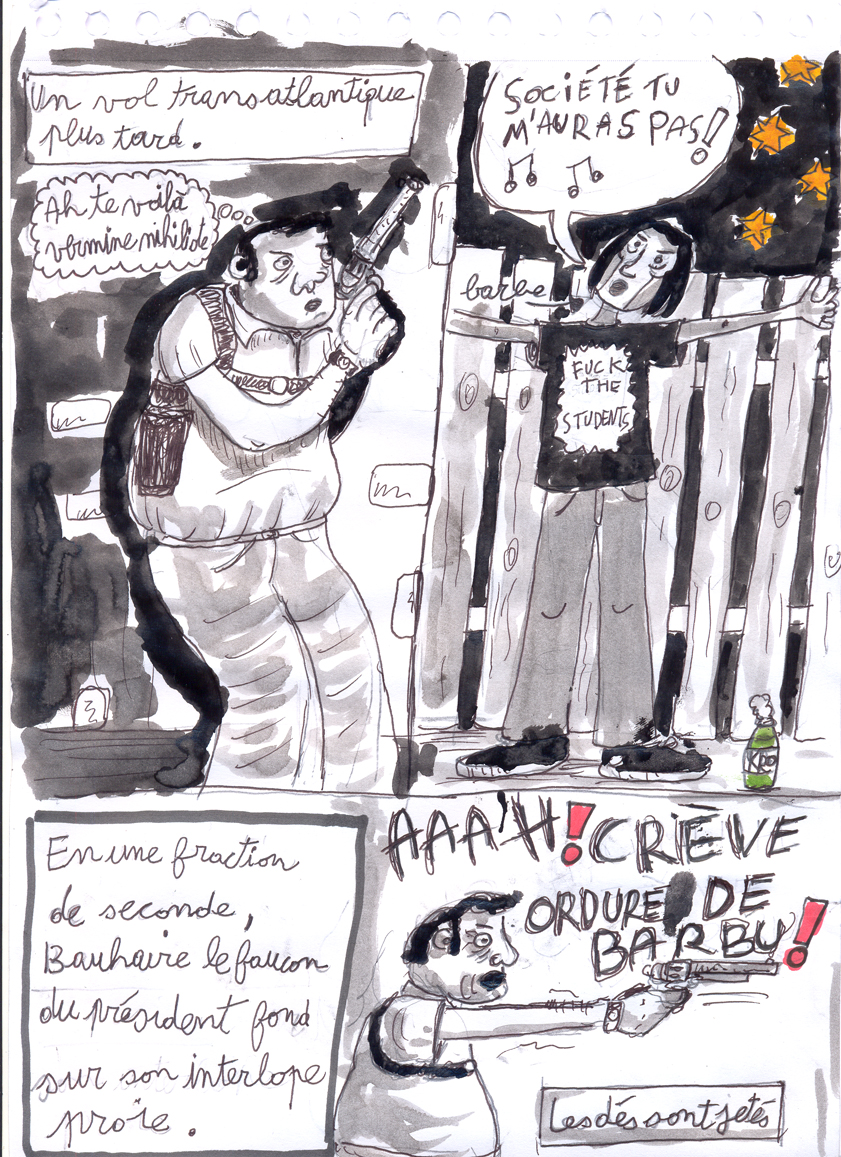 Un vol transatlantique
plus tard.
Ah te voilà
vermine nihiliste
SOCIÉTÉ TU
M'AURAS PAS!
barbe
FUCK
THE
STUDENTS
KRO
En une fraction
de seconde,
Bauhaire le faucon
du président fond
sur son interlope
proïe.
AAA'H! CRÈVE
ORDURE DE
BARBU!
Les dés sont jetés